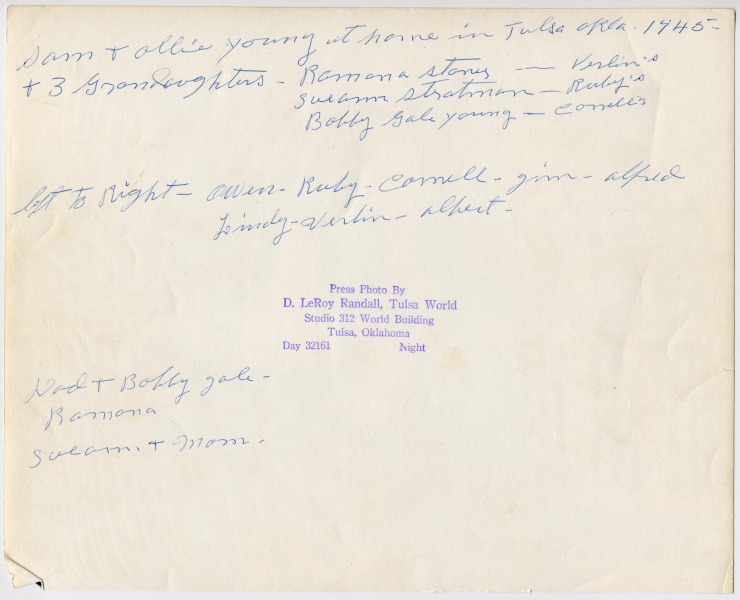 Sam + Ollie Young at home in Tulsa Okla - 1945 -
+ 3 Grandaughters - Ramona Stones -- Verlin's
Sueann Stratman - Ruby's
Bobby Gale Young - Cornell's
left to Right - Owen - Ruby - Cornell - Jim - Alfred
Lindy - Verlin - Albert -
Press Photo By
D. LeRoy Randall, Tulsa World
Studio 312 World Building
Tulsa, Oklahoma
Day 32161 Night
Dad + Bobby Gale -
Ramona
Sueann. + Mom.